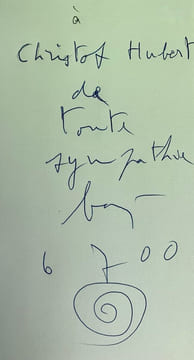 à
Christof Hubert
de
toute
sympathie
6 7 00